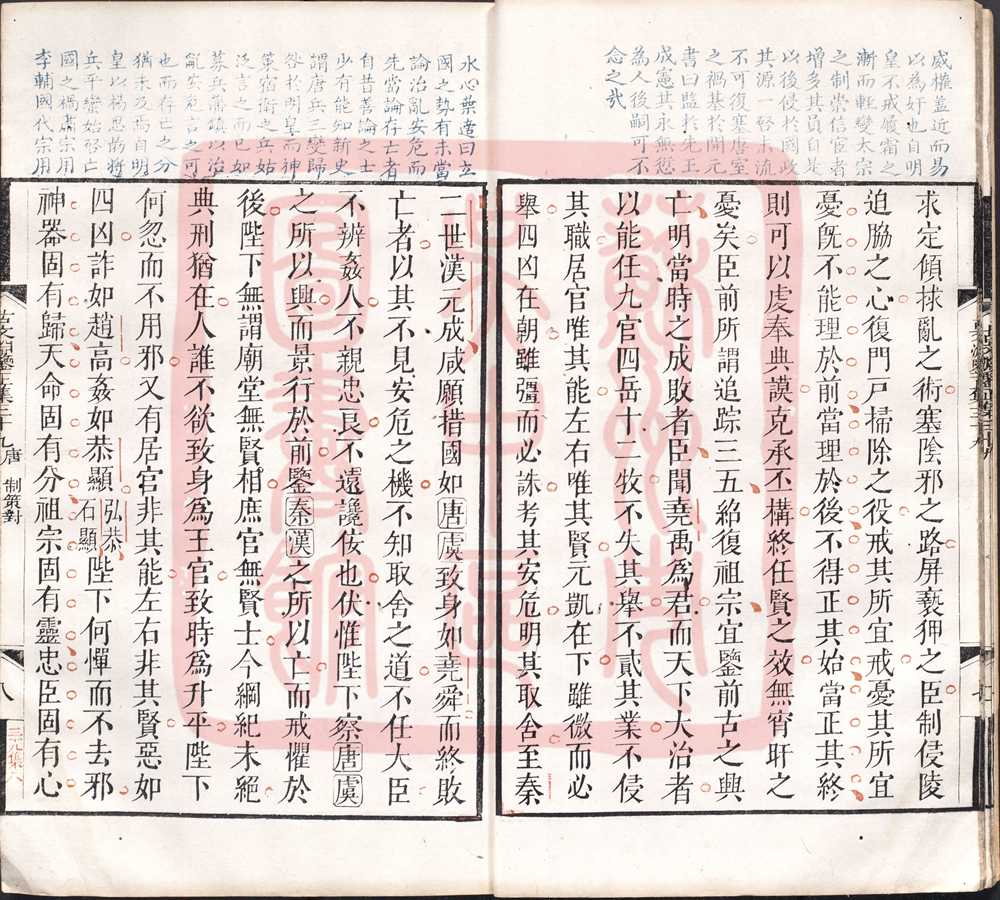 威權盖近而易
以為奸也自明
皇不戒履霜之
漸而輕變太宗
之制崇信宦者
增多其員自是
以後侵於國政
其源一啓末流
不可復塞唐室
之禍基於開元
書曰監於先王
成憲其永無愆
為人後嗣可不
念之哉
求定傾救亂之術塞陰邪之路屏褻狎之臣制侵陵
迫脇之心復門戸掃除之役戒其所宜戒憂其所宜
憂旣不能理於前當理於後不得正其始當正其終
則可以䖍奉典謨克承丕構終任賢之效無宵旰之
憂矣臣前所謂追踪三五紹復祖宗宜鑒前古之興
亡明當時之成敗者臣聞堯禹爲君而天下大治者
以能任九官四岳十二牧不失其舉不貳其業不侵
其職居官唯其能左右唯其賢元凱在下雖微而必
舉四凶在朝雖彊而必誅考其安危明其取舍至秦
水心葉適曰立
國之勢有未當
論治亂安危而
先當論存亡者
自昔善論之士
少有能知新史
謂唐兵三變歸
欲於明皇而神
策宿衛之兵姑
泛言之而已如
募兵藩鎮以治
亂安危言之可
也而存亡之分
猶未及焉自明
皇以楊思勗將
兵平蠻始啓亡
國之禍肅宗用
李輔國代宗用
二世漢元成咸願措國如唐虞致身如堯舜而終敗
亡者以其不見安危之機不知取舍之道不任大臣
不辨姦人不親忠良不遠讒佞也伏惟陛下察唐虞
之所以興而景行於前鑒秦漢之所以亡而戒懼於
後陛下無謂廟堂無賢相庶官無賢士今綱紀未絕
典刑猶在人誰不欲致身爲王官致時爲升平陛下
何忽而不用邪又有居官非其能左右非其賢惡如
四凶詐如趙高姦如恭顯弘恭石顯陛下何憚而不去邪
神器固有歸天命固有分祖宗固有靈忠臣固有心
唐 制策對
八